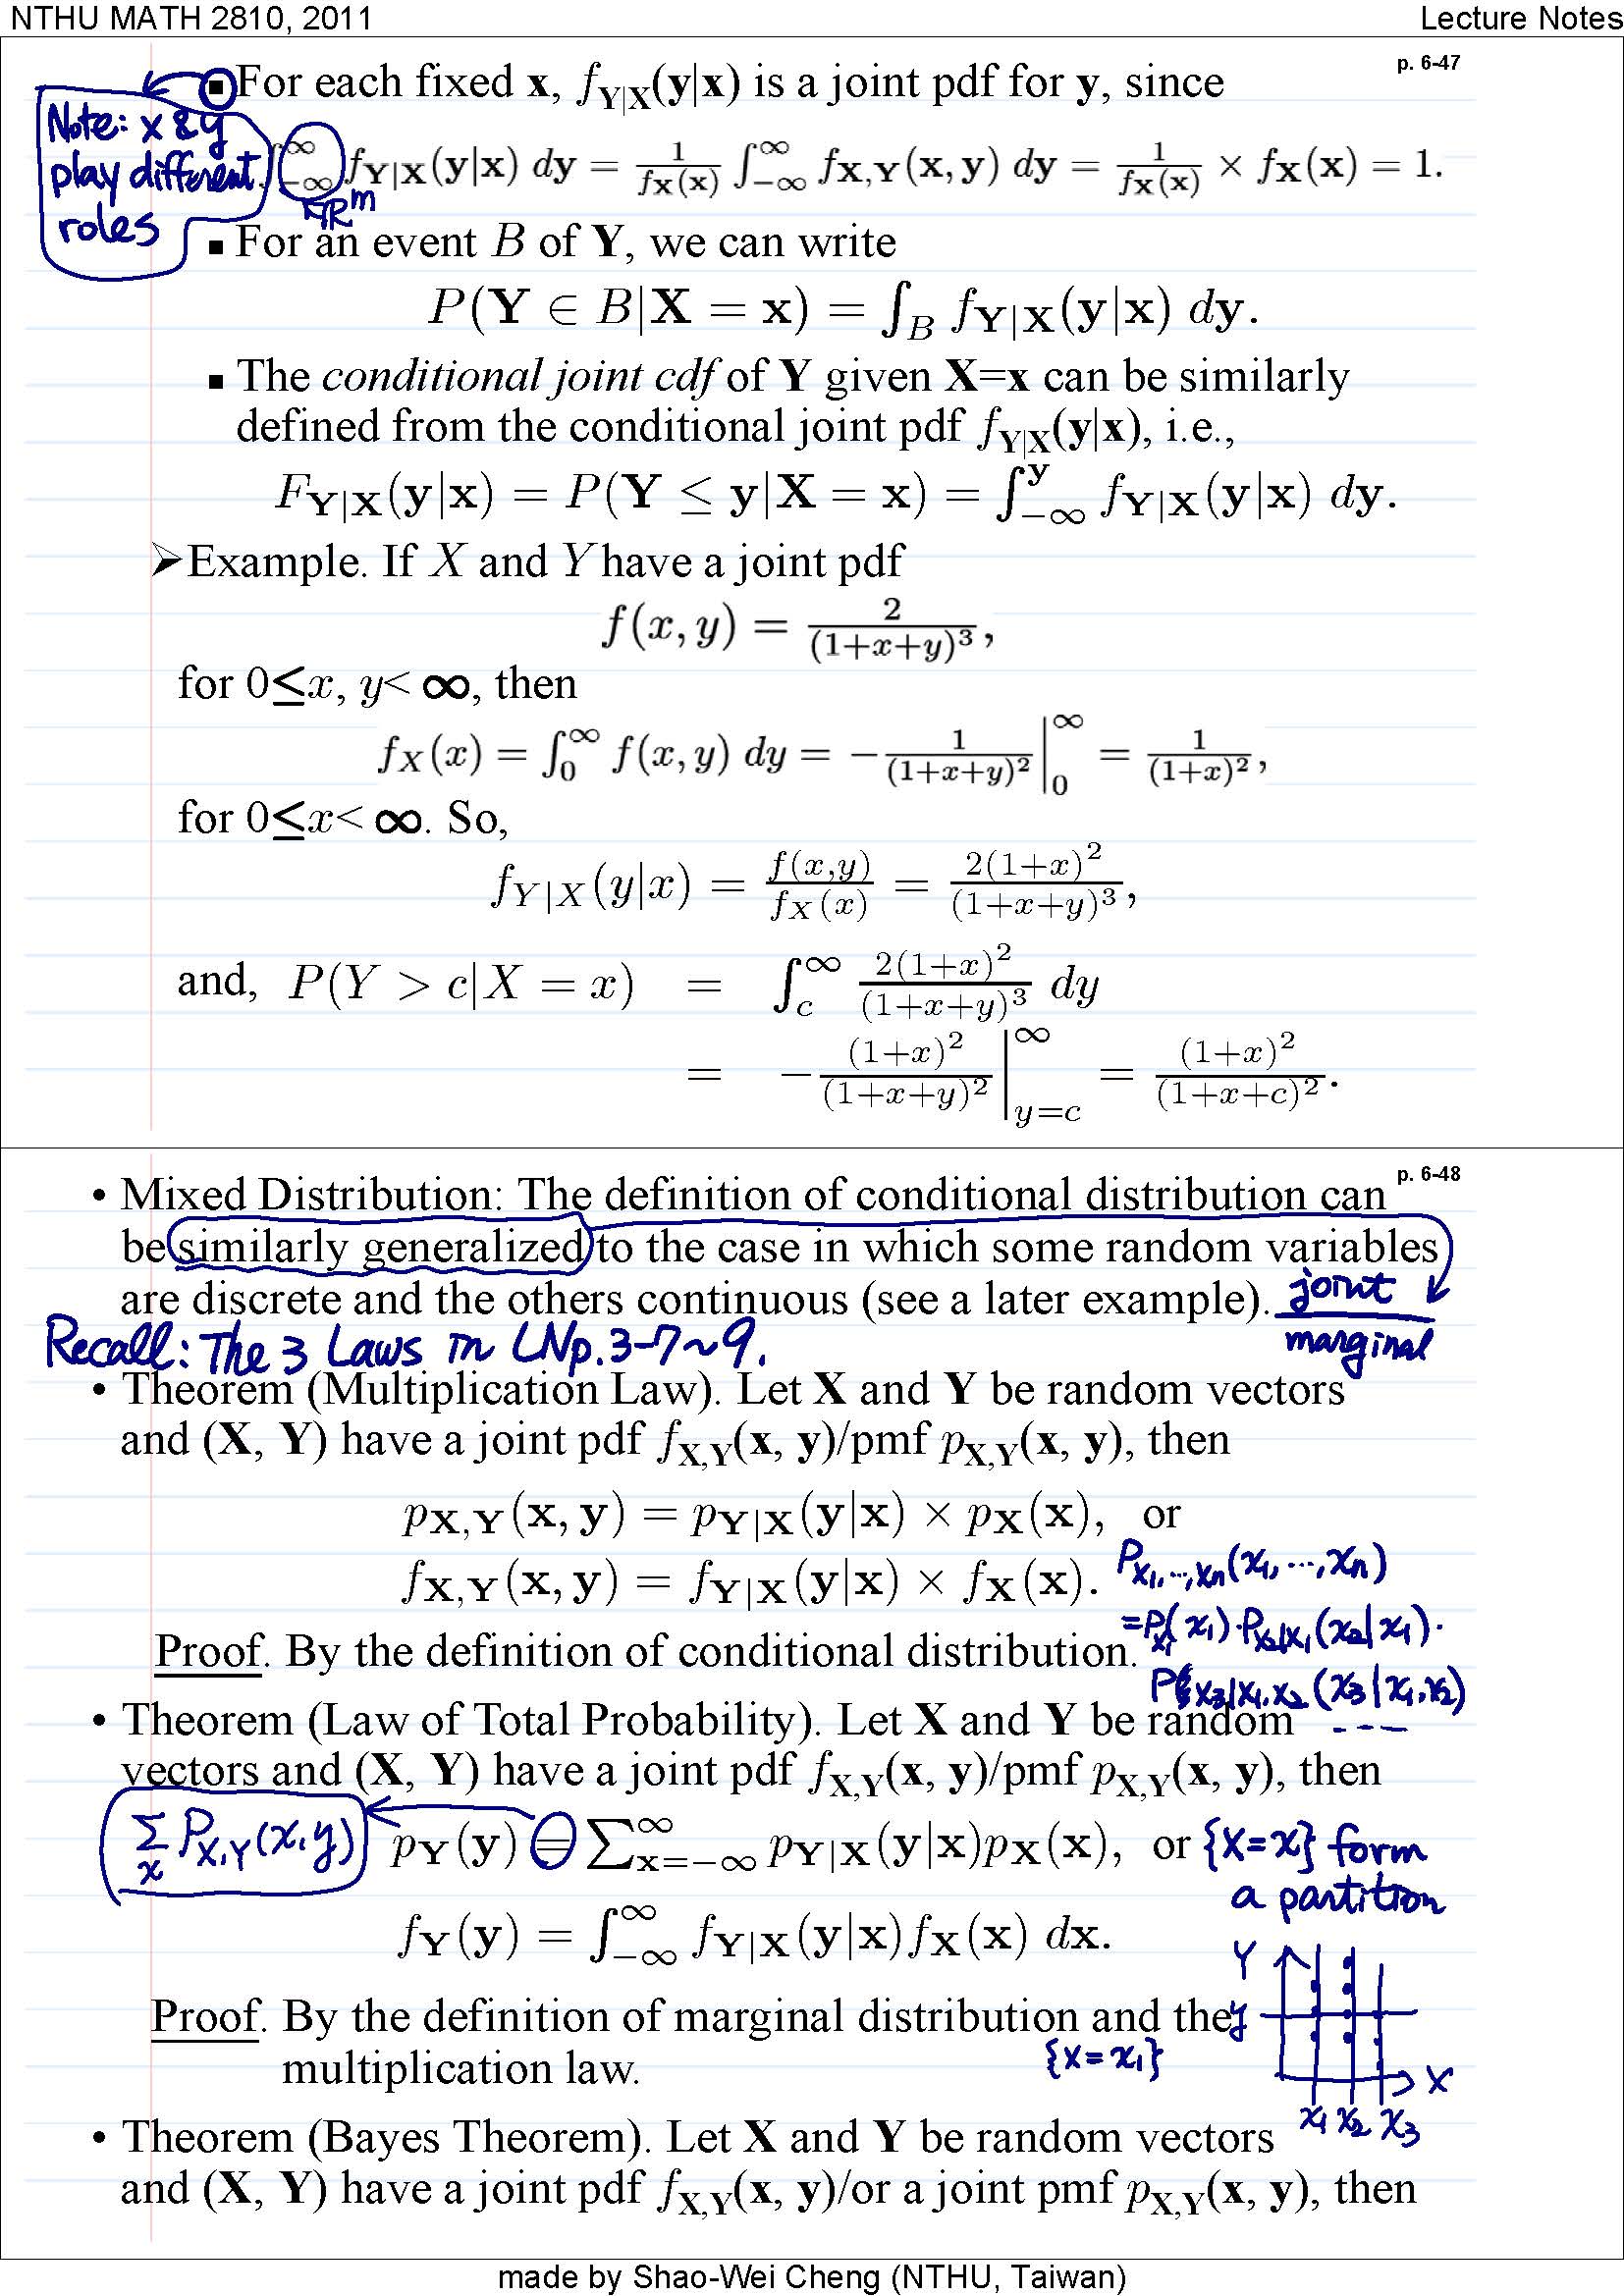 NTHU MATH 2810, 2011 Lecture Notes
p. 6-47
▪ For each fixed x, f_{Y|X}(y|x) is a joint pdf for y, since
Note: x & y
play different
roles
∫_{-∞}^{∞} f_{Y|X}(y|x) dy = 1/f_X(x) ∫_{-∞}^{∞} f_{X,Y}(x, y) dy = 1/f_X(x) × f_X(x) = 1.
▪ For an event B of Y, we can write
P(Y ∈ B|X = x) = ∫_B f_{Y|X}(y|x) dy.
▪ The conditional joint cdf of Y given X=x can be similarly
defined from the conditional joint pdf f_{Y|X}(y|x), i.e.,
F_{Y|X}(y|x) = P(Y ≤ y|X = x) = ∫_{-∞}^{y} f_{Y|X}(y|x) dy.
➢Example. If X and Y have a joint pdf
f(x, y) = 2/(1+x+y)^3,
for 0≤x, y< ∞, then
f_X(x) = ∫_0^∞ f(x, y) dy = −1/(1+x+y)^2 |_0^∞ = 1/(1+x)^2,
for 0≤x< ∞. So,
f_{Y|X}(y|x) = f(x,y)/f_X(x) = 2(1+x)^2/(1+x+y)^3,
and, P(Y > c|X = x) = ∫_c^∞ 2(1+x)^2/(1+x+y)^3 dy
= −(1+x)^2/(1+x+y)^2 |_{y=c}^∞ = (1+x)^2/(1+x+c)^2.
p. 6-48
• Mixed Distribution: The definition of conditional distribution can
be similarly generalized to the case in which some random variables
are discrete and the others continuous (see a later example). joint
marginal
Recall: The 3 Laws in LNp.3-7~9.
• Theorem (Multiplication Law). Let X and Y be random vectors
and (X, Y) have a joint pdf f_{X,Y}(x, y)/pmf p_{X,Y}(x, y), then
p_{X,Y}(x, y) = p_{Y|X}(y|x) × p_X(x), or
f_{X,Y}(x, y) = f_{Y|X}(y|x) × f_X(x).
P_{X1,…,Xn}(x1, …, xn)
=P_{X1}(x1)·P_{X2|X1}(x2|x1)·
Proof. By the definition of conditional distribution.
P_{X3|X1,X2}(x3|x1,x2)
----
• Theorem (Law of Total Probability). Let X and Y be random
vectors and (X, Y) have a joint pdf f_{X,Y}(x, y)/pmf p_{X,Y}(x, y), then
Σ_x P_{X,Y}(x,y)
p_Y(y) = Σ_{x=-∞}^{∞} p_{Y|X}(y|x)p_X(x), or
{X=x} form
a partition
f_Y(y) = ∫_{-∞}^{∞} f_{Y|X}(y|x)f_X(x) dx.
Y
Proof. By the definition of marginal distribution and the
y
multiplication law.
{X=x1}
X
x1 x2 x3
• Theorem (Bayes Theorem). Let X and Y be random vectors
and (X, Y) have a joint pdf f_{X,Y}(x, y)/or a joint pmf p_{X,Y}(x, y), then
made by Shao-Wei Cheng (NTHU, Taiwan)